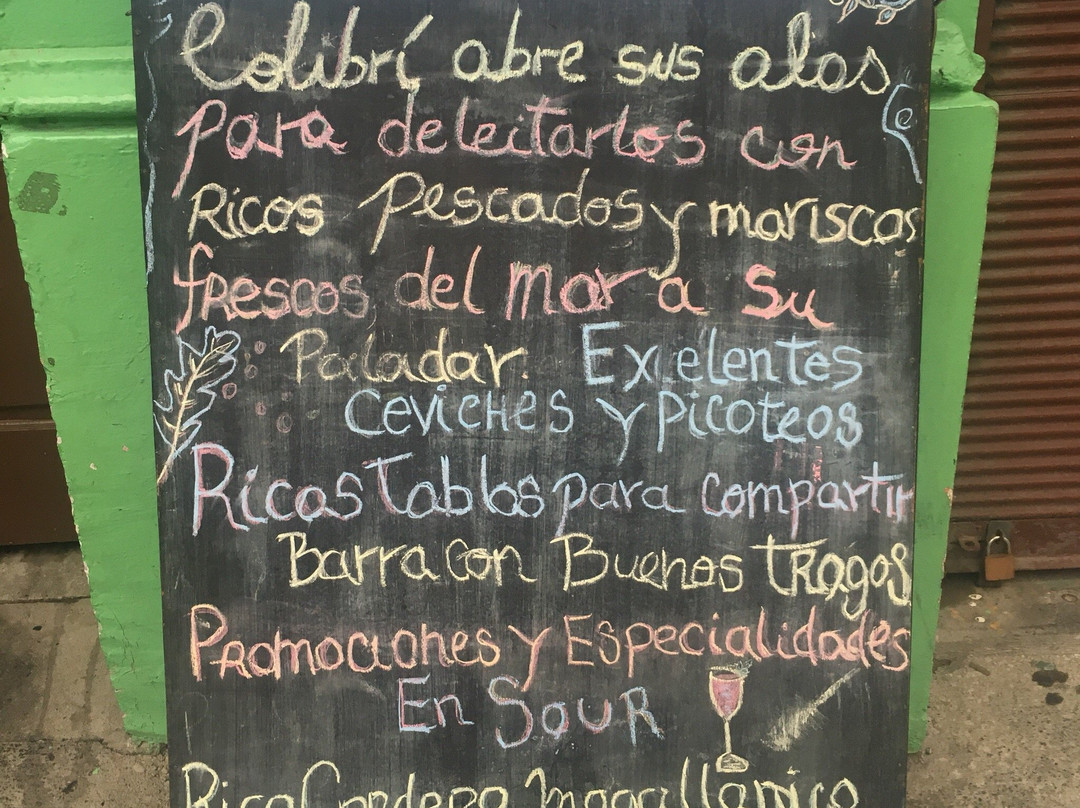 Colibrí abre sus alas
para deleitarlos con
Ricos Pescados y mariscos
frescos del mar a Su
Paladar. Exelentes
Ceviches y picoteos
Ricas Tablas para compartir
Barra con Buenos tragos
Promociones y Especialidades
En Sour
Rico Cordero Magallánico